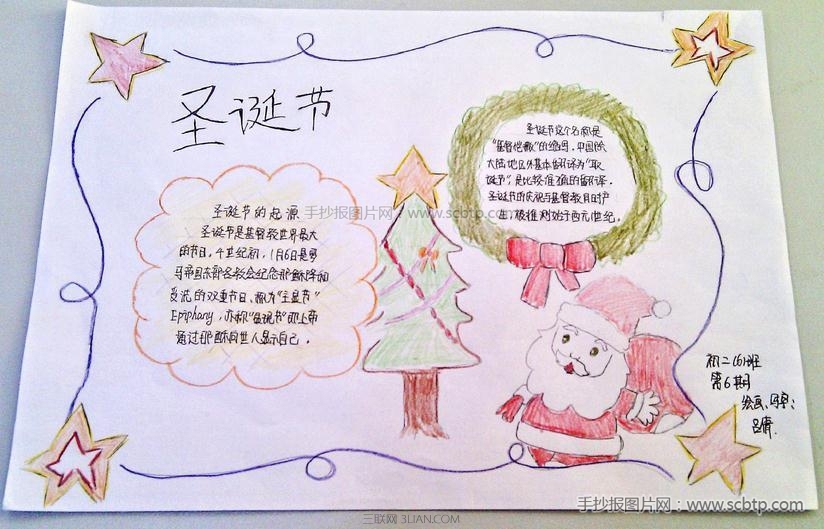 圣诞节
圣诞节的起源
圣诞节是基督教世界最大
的节日。4世纪初,1月6日是罗
马帝国东部各教会纪念耶稣降和
受洗的双重节日、称为"主显节"
Epiphany,亦称"显现节"即上帝
通过耶稣向世人显示自己。
圣诞节这个名称是
"基督弥撒"的缩写。中国除
大陆地区外基本翻译为"耶
诞节"是比较准确的翻译。
圣诞节的庆祝与基督教同时产
生,被推测始于西元1世纪。
初二(6)班
第6期
手抄报图片网:www.scbtp.com
手抄报图片网:www.scbtp.com
三联网 3LIAN.COM